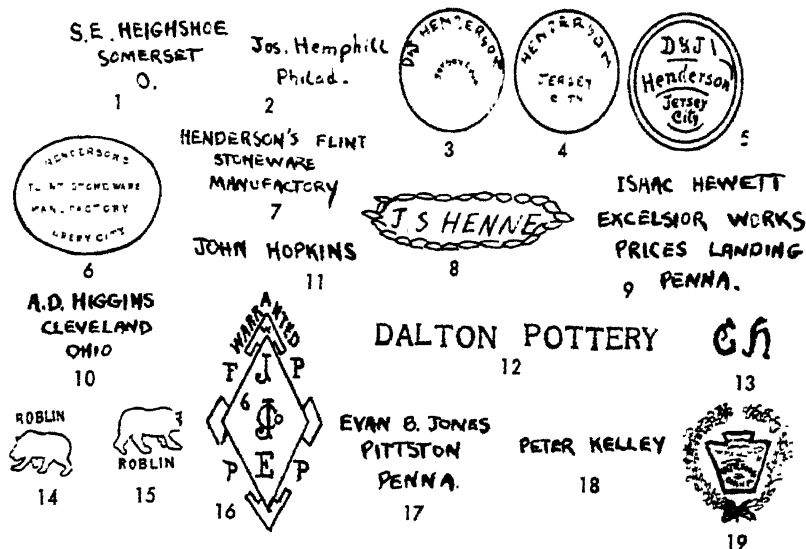 S.E. HEIGHSHOE
SOMERSET
O.
1
Jos. Hemphill
Philad.
2
D&J HENDERSON
3
HENDERSON
JERSEY
CITY
4
D&J
Henderson
Jersey
City
5
HENDERSON'S
FLINT STONEWARE
MANUFACTORY
CITY
6
HENDERSON'S FLINT
STONEWARE
MANUFACTORY
7
J S HENNE
8
ISHAC HEWETT
EXCELSIOR WORKS
PRICES LANDING
PENNA.
9
A.D. HIGGINS
CLEVELAND
OHIO
10
JOHN HOPKINS
11
DALTON POTTERY
12
CH
13
ROBLIN
14
ROBLIN
15
WARRANTED
F J P
6
P E P
16
EVAN B. JONES
PITTSTON
PENNA.
17
PETER KELLEY
18
19